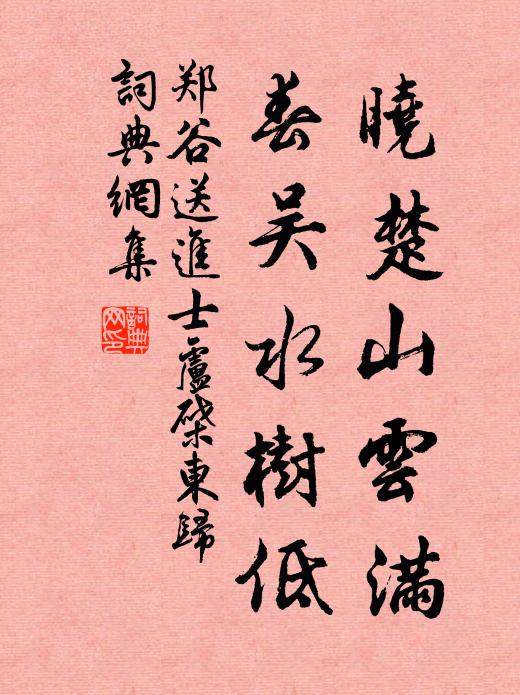 曉楚山雲滿
春吳水樹低
郑谷送進士盧棨東歸
詞典網集
詞典網印